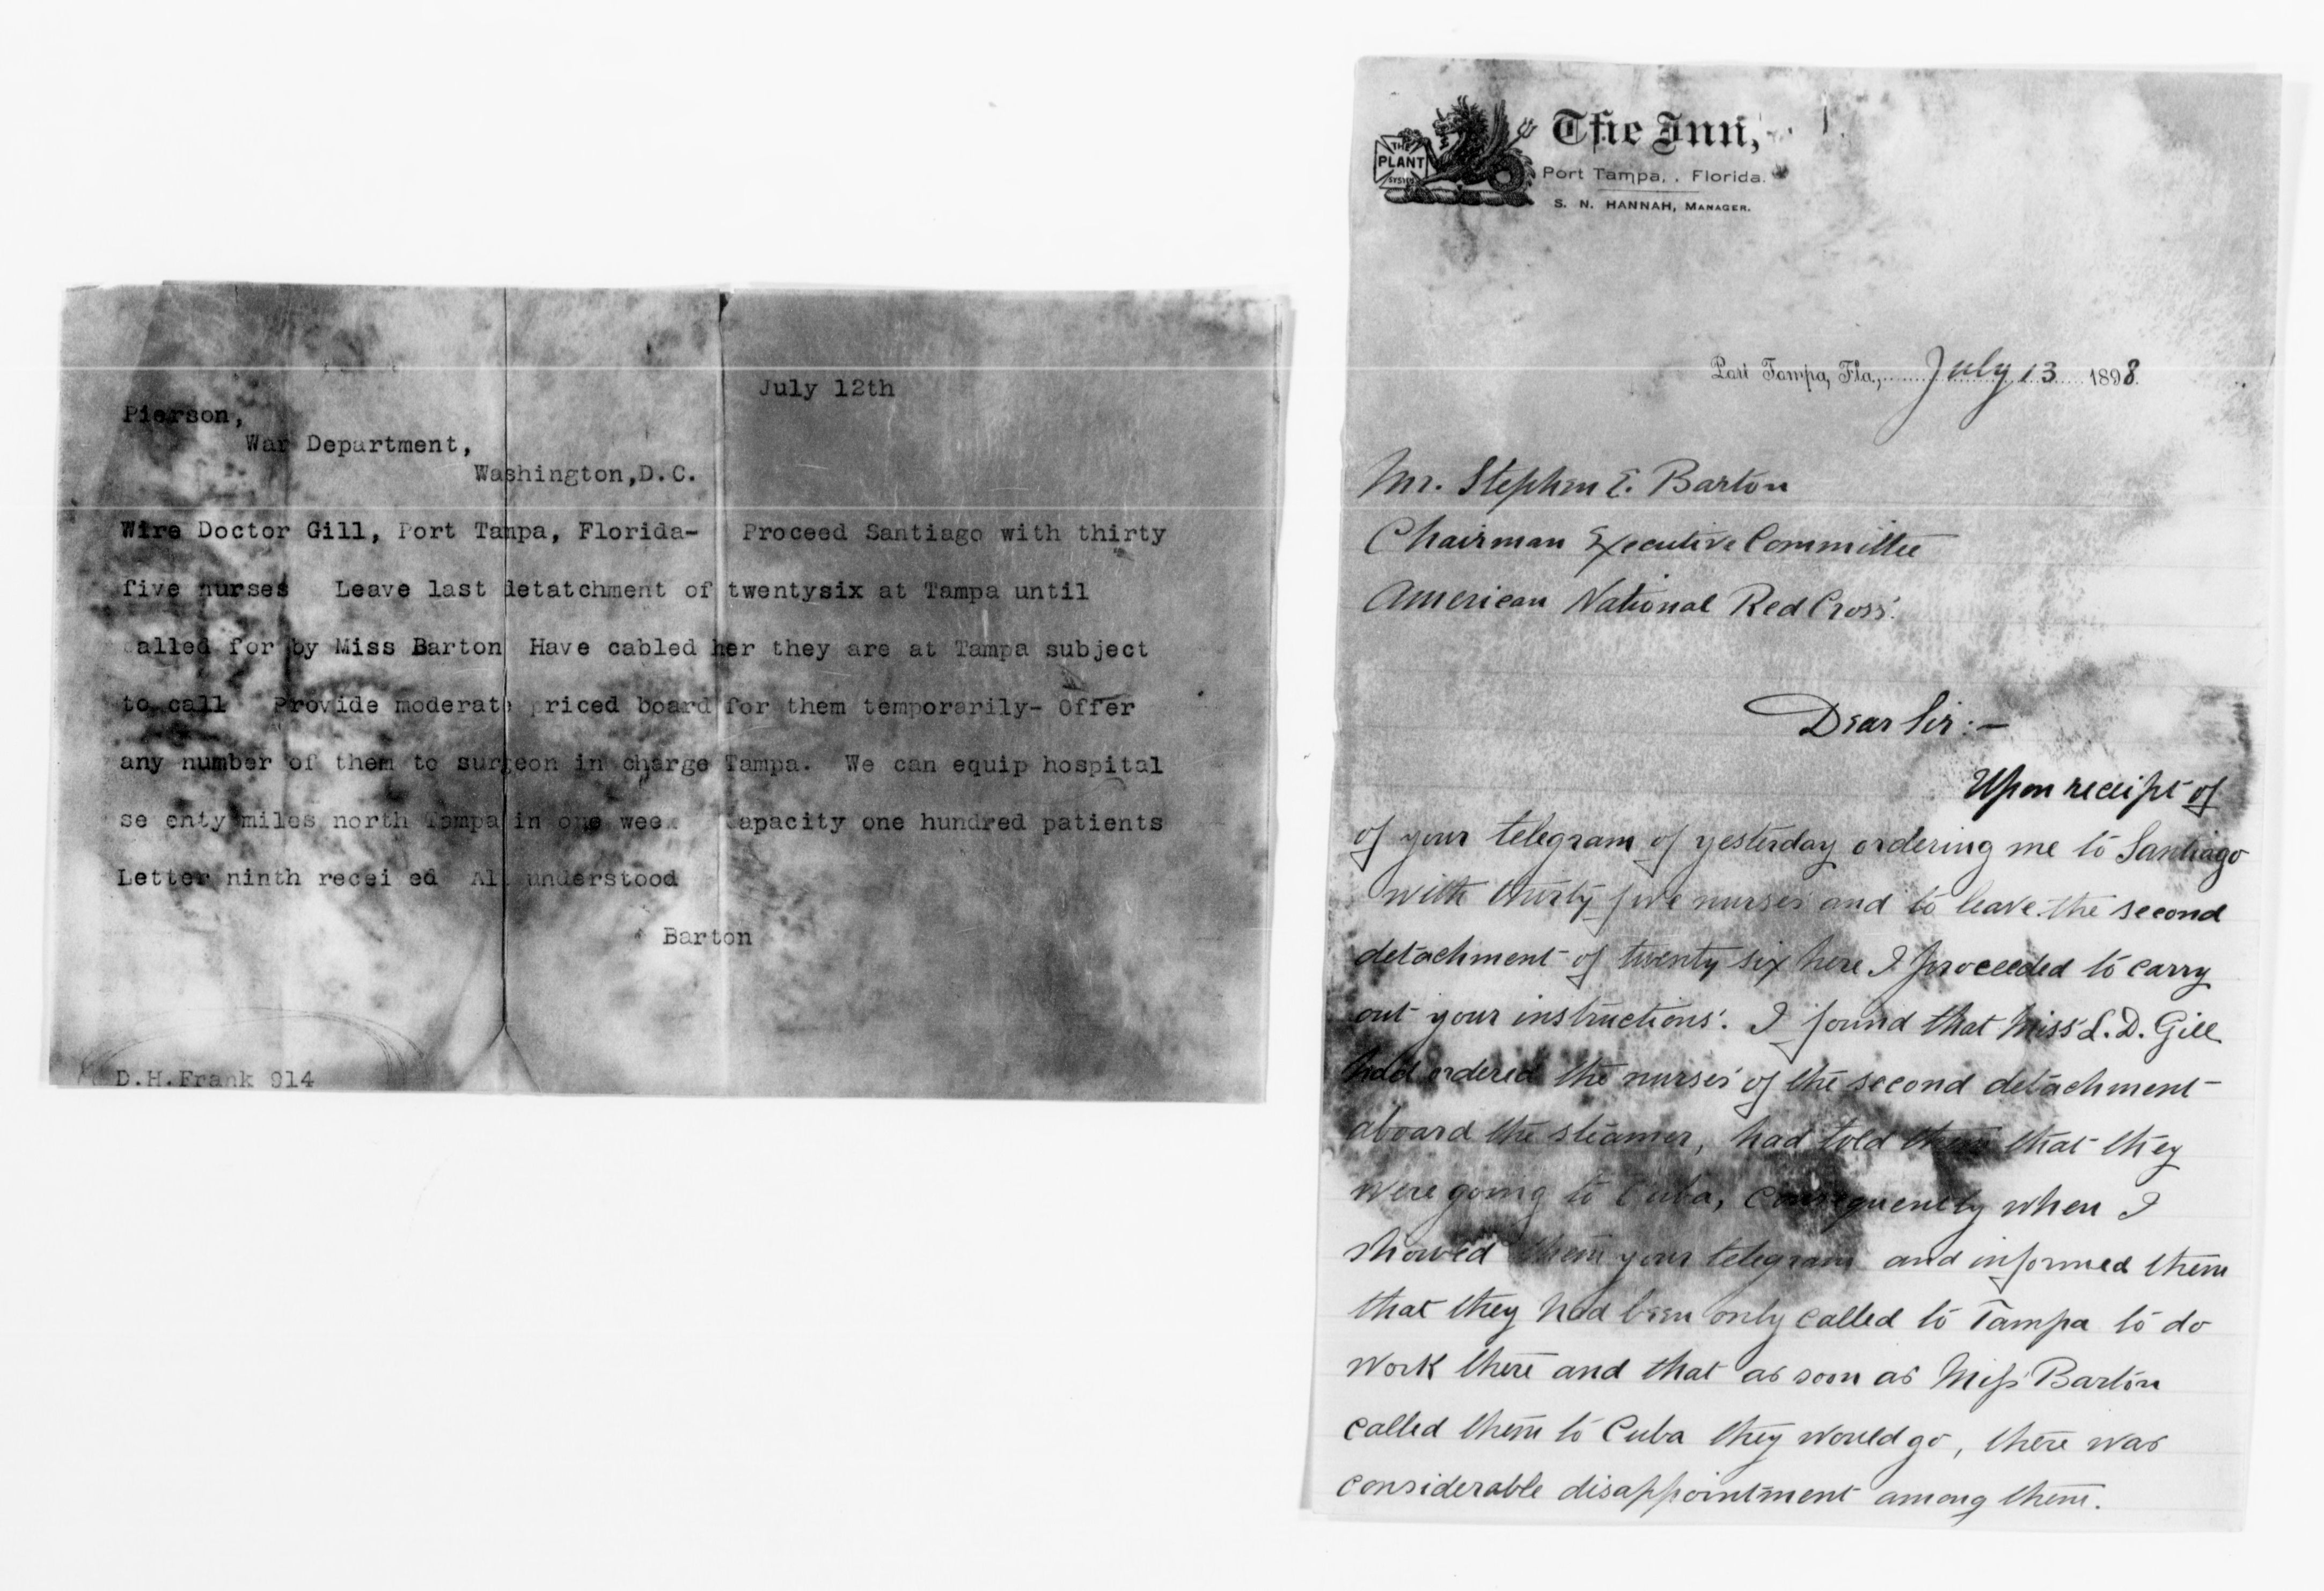 July 12th
Pierson,
War Department,
Washington,D.C.
Wire Doctor Gill, Port Tampa, Florida- Proceed Santiago with thirty
five nurses Leave last detatchment of twentysix at Tampa until
alled for by Miss Barton Have cabled her they are at Tampa subject
to call Provide moderate priced board for them temporarily- Offer
any number of them to surgeon in charge Tampa. We can equip hospital
se enty miles north Tampa in one wee apacity one hundred patients
Letter ninth recei ed All understood
Barton
D.H.Frank 914
THE
PLANT
SYSTEM
The Inn,
Port Tampa, . Florida.
S. N. HANNAH, MANAGER.
Port Tampa, Fla., July 13 1898.
Mr. Stephen E. Barton
Chairman Executive Committee
American National Red Cross.
Dear Sir:—
Upon receipt of
of your telegram of yesterday ordering me to Santiago
with thirty five nurses and to leave the second
detachment of twenty six here I proceeded to carry
out your instructions. I found that Miss L. D. Gill
had ordered the nurses of the second detachment
aboard the steamer, had told them that they
were going to Cuba, consequently when I
showed them your telegram and informed them
that they had been only called to Tampa to do
work there and that as soon as Miss Barton
called them to Cuba they would go, there was
considerable disappointment among them.